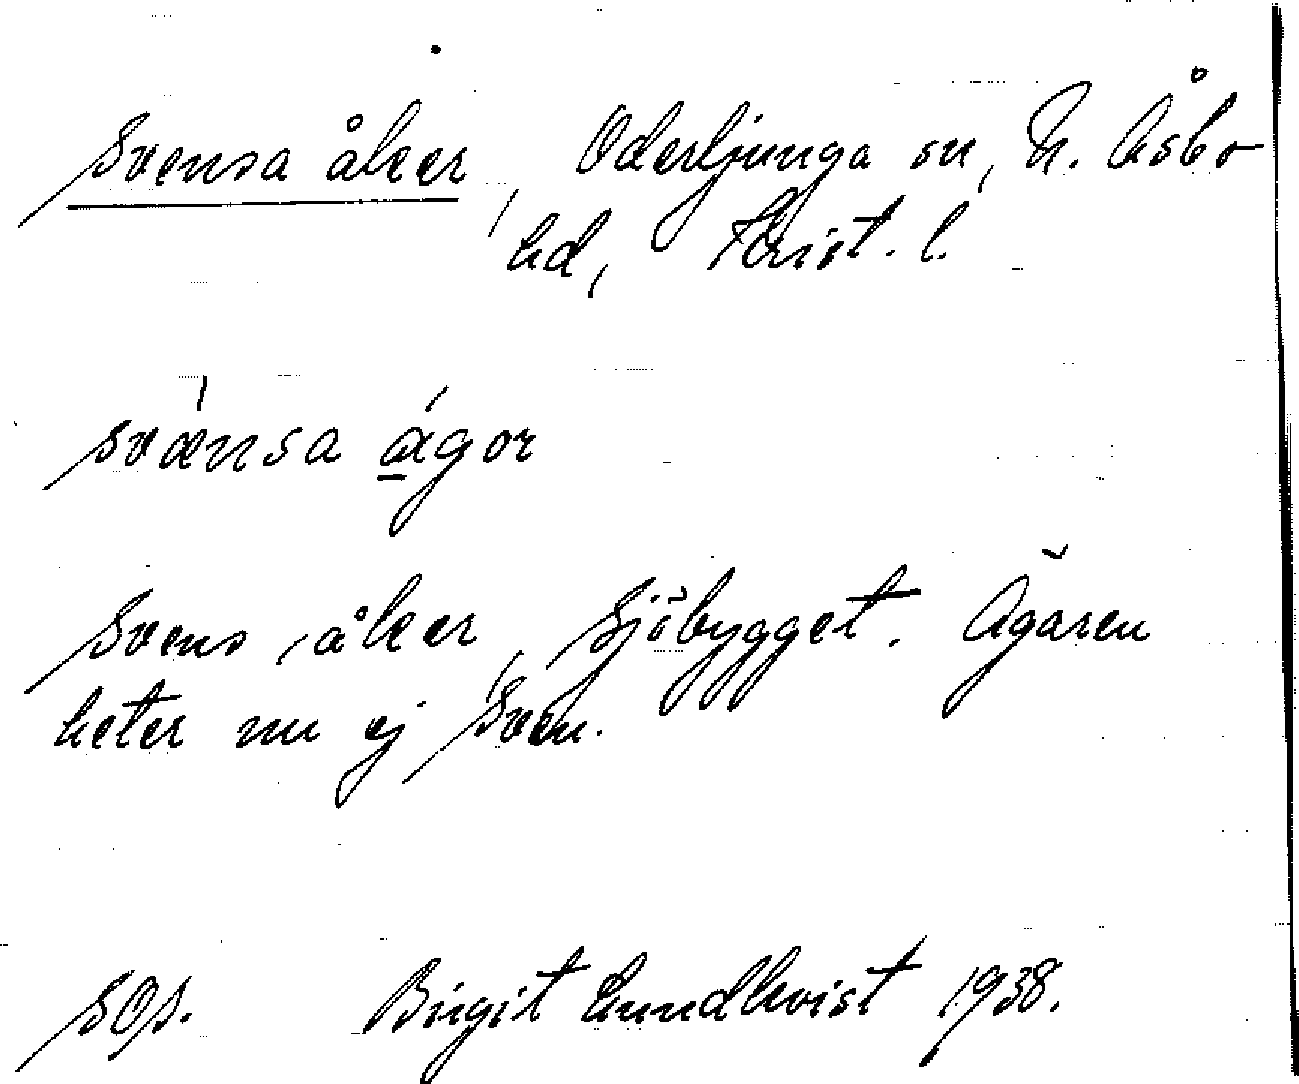 Svensa åker, Oderljunga sn, N. Åsbo
hd, Krist. l.
svænsa ágor
Svens åker, Sjöbygget. Ägaren
heter nu ej Sven.
Birgit Lundkvist 1938.